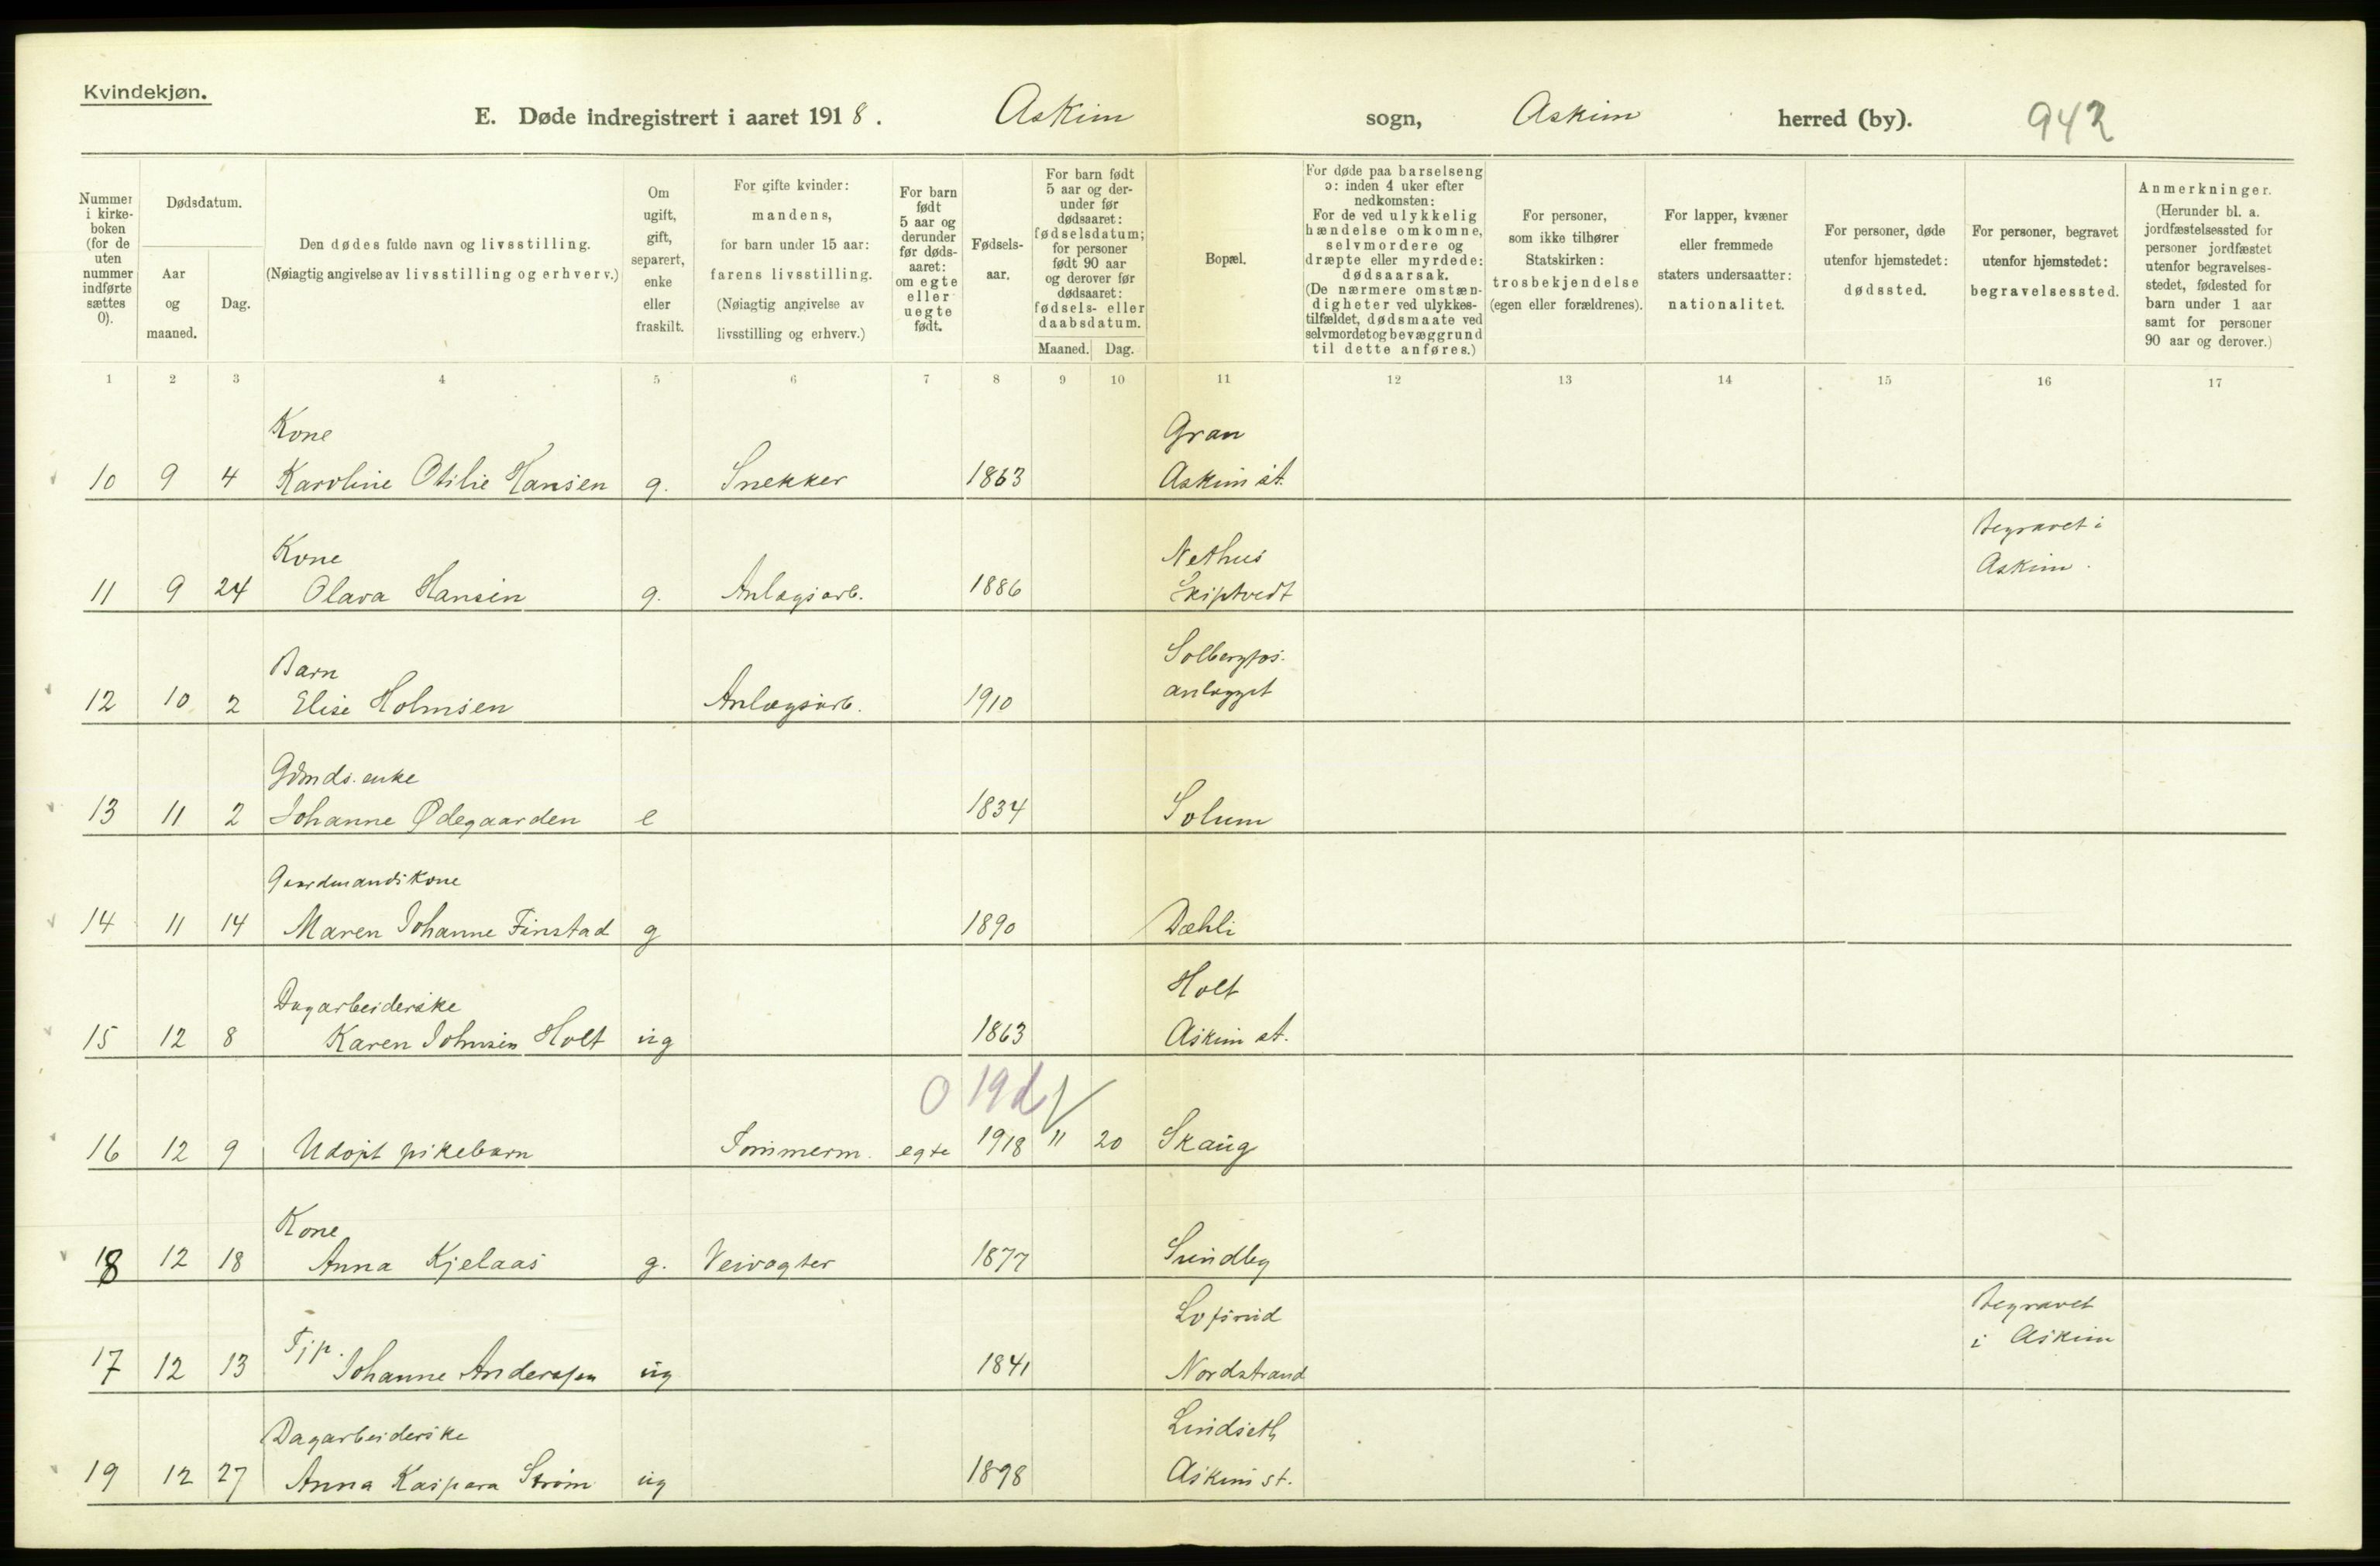 Kvindekjøn.
E. Døde indregistrert i aaret 1918. Askim sogn, Askim herred (by). 942
Nummer i kirke-boken (for de uten nummer indførte sættes 0).
Dødsdatum.
Aar og maaned.
Dag.
Den dødes fulde navn og livsstilling.
(Nøiagtig angivelse av livsstilling og erhverv.)
Om ugift, gift, separert, enke eller fraskilt.
For gifte kvinder: mandens, for barn under 15 aar: farens livsstilling.
(Nøiagtig angivelse av livsstilling og erhverv.)
For barn født 5 aar og derunder før døds-aaret: om egte eller uegte født.
Fødsels-aar.
For barn født 5 aar og der-under før dødsaaret: fødselsdatum; for personer født 90 aar og derover før dødsaaret: fødsels- eller daabsdatum.
Maaned. Dag.
Bopæl.
For døde paa barselseng ɔ: inden 4 uker efter nedkomsten:
For de ved ulykkelig hændelse omkomne, selvmordere og dræpte eller myrdede: dødsaarsak.
(De nærmere omstæn-digheter ved ulykkes-tilfældet, dødsmaate ved selvmordet og bevæggrund til dette anføres.)
For personer, som ikke tilhører Statskirken: trosbekjendelse (egen eller forældrenes).
For lapper, kvæner eller fremmede staters undersaatter: nationalitet.
For personer, døde utenfor hjemstedet: dødssted.
For personer, begravet utenfor hjemstedet: begravelsessted.
Anmerkninger.
(Herunder bl. a. jordfæstelsessted for personer jordfæstet utenfor begravelses-stedet, fødested for barn under 1 aar samt for personer 90 aar og derover.)
1 2 3 4 5 6 7 8 9 10 11 12 13 14 15 16 17
Kone Gran
10 9 4 Karoline Otilie Hansen g. Snekker 1863 Askim st.
Kone Nethus Begravet i
11 9 24 Olava Hansen g. Anlægsarb. 1886 Skiptvedt Askim.
Barn Solbergfos-
12 10 2 Elise Holmsen Anlægsarb. 1910 anlægget
Gdmds. enke
13 11 2 Johanne Ødegaarden e 1834 Solum
Gaardmandskone
14 11 14 Maren Johanne Finstad g 1890 Dæhli
Dagarbeiderske Holt
15 12 8 Karen Johnsen Holt ug 1863 Askim st.
0 19d
16 12 9 Udøpt pikebarn Tømmerm. egte 1918 11 20 Skaug
Kone
18 12 18 Anna Kjelaas g. Veivogter 1877 Sundby
Fjp. Begravet
17 12 13 Johanne Anderssen ug 1841 Nordstrand i Askim
Dagarbeiderske Lindseth
19 12 27 Anna Kaspara Strøm ug 1898 Askim st.